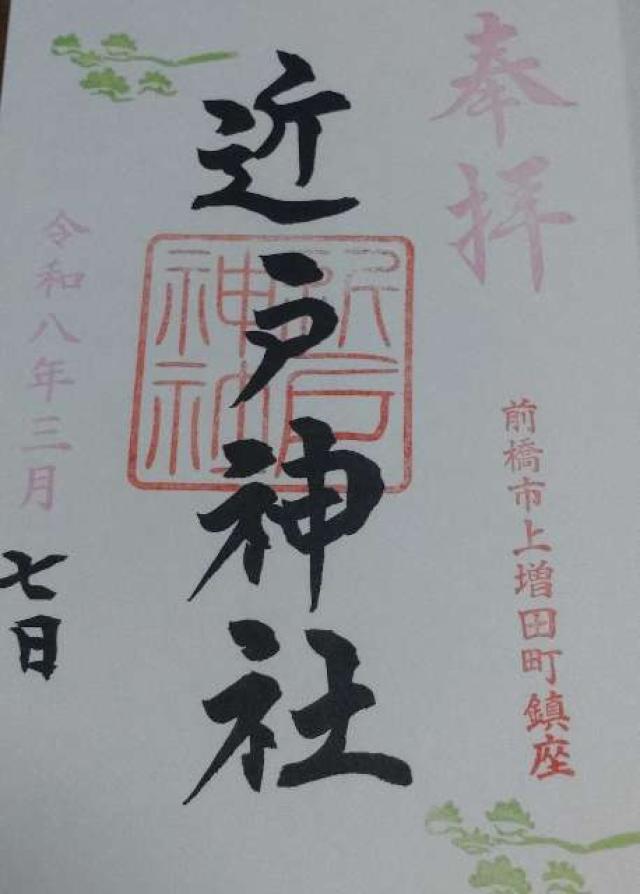 奉拝
前橋市上増田町鎮座
近戸神社
近戸神社
令和八年三月
七日